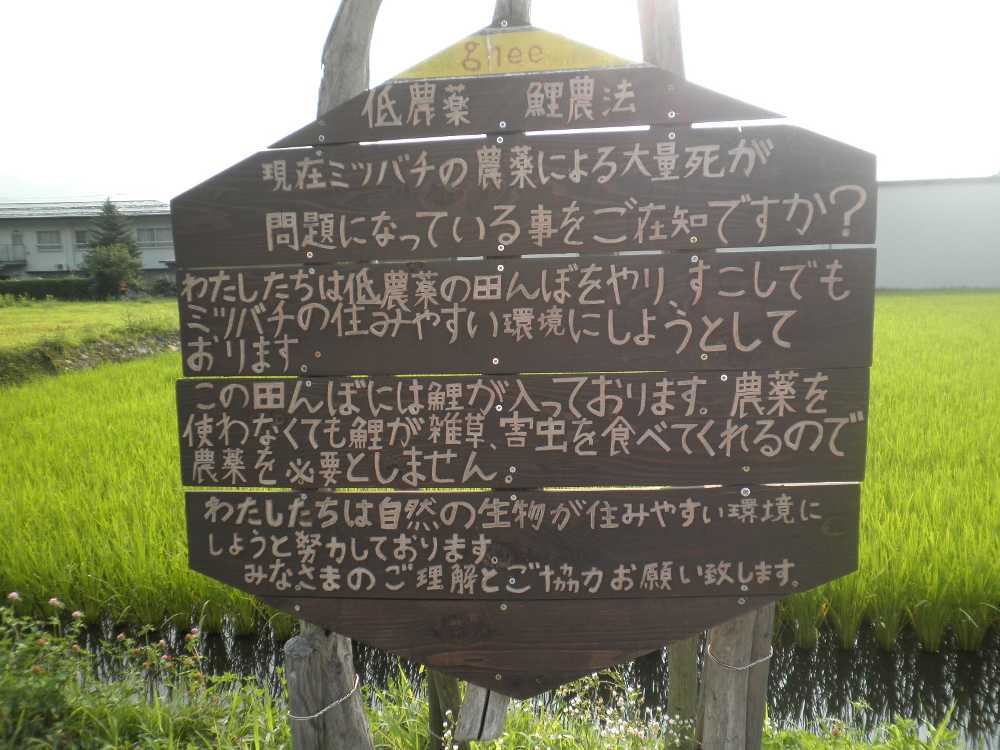 ghee
低農薬 鯉農法
現在ミツバチの農薬による大量死が
問題になっている事をご在知ですか?
わたしたちは低農薬の田んぼをやり、すこしでも
ミツバチの住みやすい環境にしようとして
おります。
この田んぼには鯉が入っております。農薬を
使わなくても鯉が雑草、害虫を食べてくれるので
農薬を必要としません。
わたしたちは自然の生物が住みやすい環境に
しようと努力しております。
みなさまのご理解とご協力お願い致します。